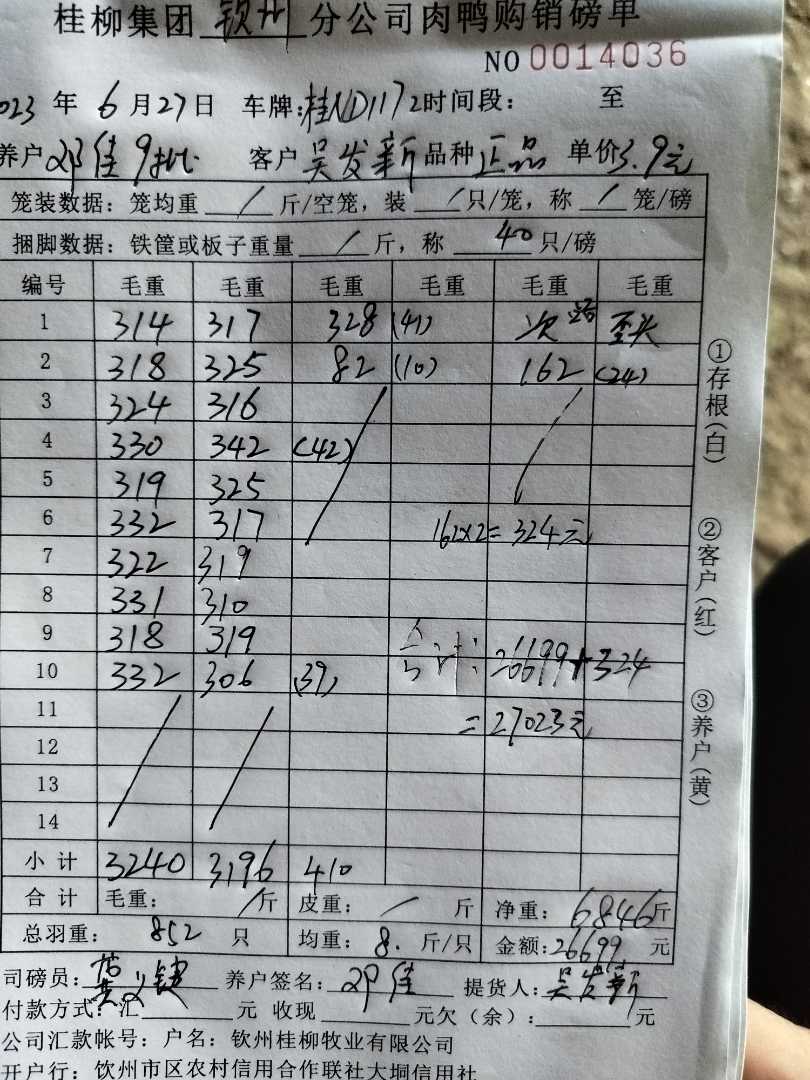 桂柳集团 钦州 分公司肉鸭购销磅单
NO 0014036
2023 年 6 月 27 日 车牌:桂ND1172 时间段: 至
养户 邓佳9批 客户 吴发新 品种 正品 单价 3.9元
笼装数据: 笼均重 / 斤/空笼, 装 / 只/笼, 称 / 笼/磅
捆脚数据: 铁筐或板子重量 / 斤, 称 40 只/磅
编号 毛重 毛重 毛重 毛重 毛重 毛重
1 314 317 328 (41) 次 歪头
2 318 325 82 (10) 162 (24)
3 324 316
4 330 342 (42)
5 319 325
6 332 317 162×2=324元
7 322 319
8 331 310
9 318 319 合计: 26699+324
10 332 306 (39)
11 =27023元
12
13
14
小计 3240 3196 410
合计 毛重: / 斤 皮重: / 斤 净重: 6846 斤
总羽重: 852 只 均重: 8. 斤/只 金额: 26699 元
司磅员: 黄义 养户签名: 邓佳 提货人: 吴发新
付款方式: 汇 元 收现 元欠(余): 元
公司汇款帐号: 户名: 钦州桂柳牧业有限公司
开户行: 钦州市区农村信用合作联社大垌信用社
①存根(白)
②客户(红)
③养户(黄)